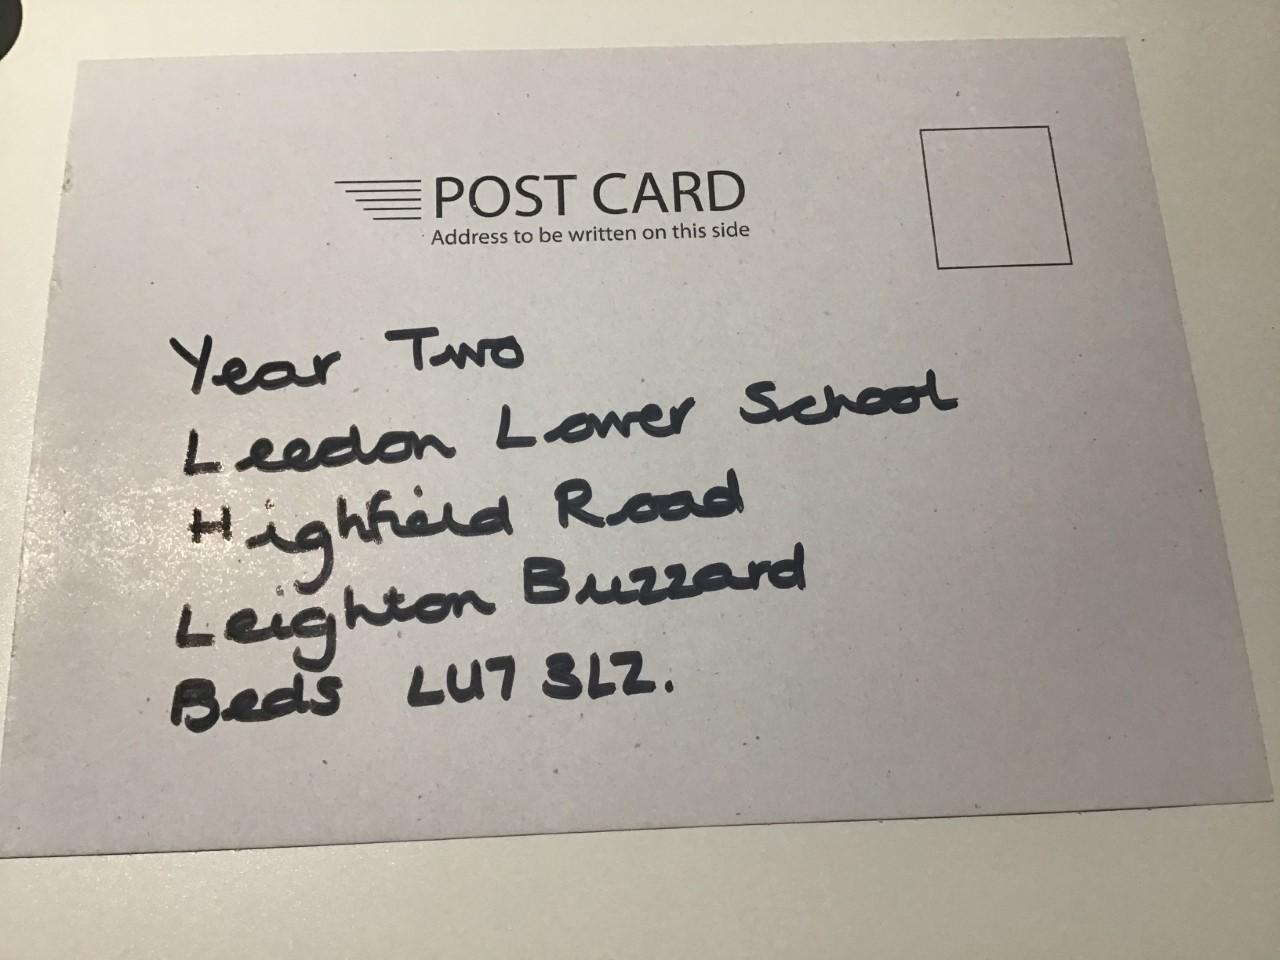 POST CARD
Address to be written on this side
Year Two
Leedon Lower School
Highfield Road
Leighton Buzzard
Beds LU7 3LZ.